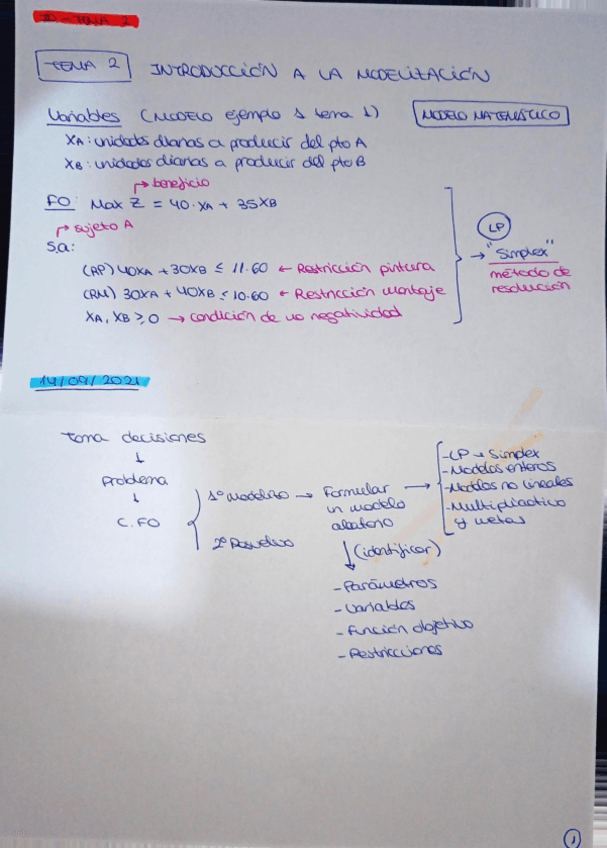 TEMA 2
TEMA 2 INTRODUCCIÓN A LA MODELIZACIÓN
Variables (MODELO ejemplo 1 tema 1) MODELO MATEMÁTICO
XA: unidades diarias a producir del pto A
XB: unidades diarias a producir del pto B
beneficio
FO: Max Z = 40·XA + 35XB
sujeto A
S.a:
LP
(RP) 40XA + 30XB ≤ 11·60 ← Restricción pintura
(RM) 30XA + 40XB ≤ 10·60 ← Restricción montaje
XA, XB ≥ 0 → condición de no negatividad
→ "Simplex"
método de
resolución
14/09/2021
toma decisiones
↓
Problema
↓
C. FO
1º Modelizo → Formular
un modelo
2º Resuelvo
→ -LP → Simplex
-Modelos enteros
-Modelos no lineales
-Multiobjetivo
y metas
↓ (identificar)
-Parámetros
-Variables
-Función objetivo
-Restricciones
1